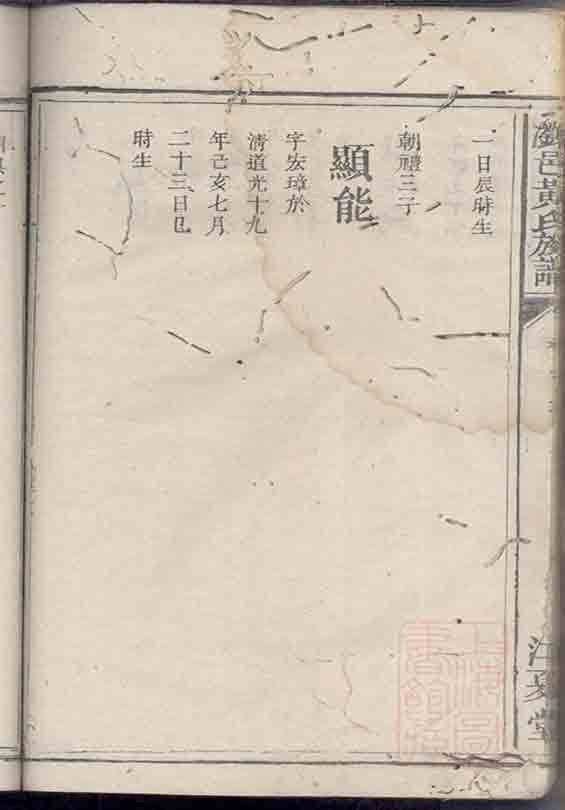 瀏邑黃氏族譜
江夏堂
一日辰時生
朝禮三子
顯能
字宏璋於
清道光十九
年己亥七月
二十三日巳
時生
上海圖
書館藏